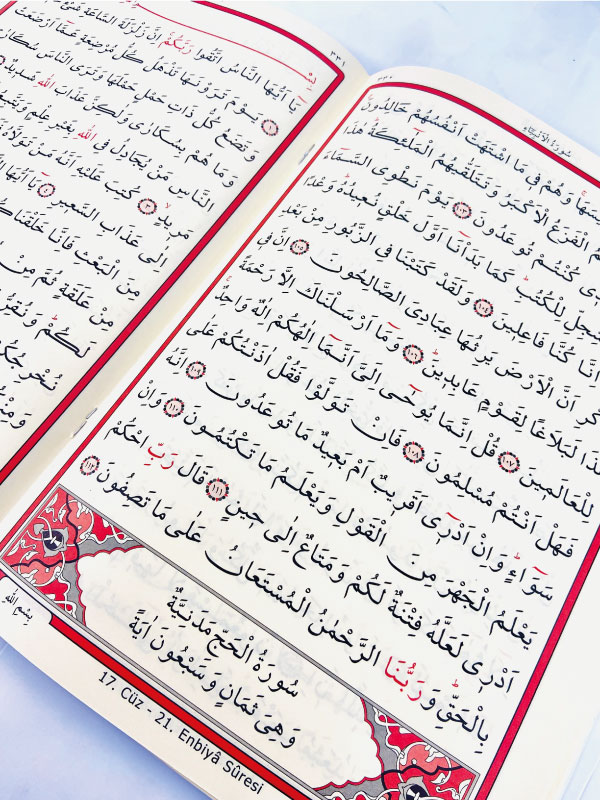 سُورَةُ الْاَنْبِيَٓاءِ
وَهُمْ فِى مَا اشْتَهَتْ اَنْفُسُهُمْ خَالِدُونَ
الْفَزَعُ الْاَكْبَرُ وَتَتَلَقّٰيهُمُ الْمَلٰٓئِكَةُ هٰذَا
كُنْتُمْ تُوعَدُونَ ١٠٣ يَوْمَ نَطْوِى السَّمَٓاءَ
لِلْكُتُبِ كَمَا بَدَاْنَٓا اَوَّلَ خَلْقٍ نُعِيدُهُ وَعْدًا
اِنَّا كُنَّا فَاعِلِينَ ١٠٤ وَلَقَدْ كَتَبْنَا فِى الزَّبُورِ مِنْ بَعْدِ
اَنَّ الْاَرْضَ يَرِثُهَا عِبَادِىَ الصَّالِحُونَ ١٠٥ اِنَّ فِى
هٰذَا لَبَلَاغًا لِقَوْمٍ عَابِدِينَ ١٠٦ وَمَٓا اَرْسَلْنَاكَ اِلَّا رَحْمَةً
لِلْعَالَمِينَ ١٠٧ قُلْ اِنَّمَا يُوحٰٓى اِلَىَّ اَنَّمَٓا اِلٰهُكُمْ اِلٰهٌ وَاحِدٌ
فَهَلْ اَنْتُمْ مُسْلِمُونَ ١٠٨ فَاِنْ تَوَلَّوْا فَقُلْ اٰذَنْتُكُمْ عَلٰى
سَوَٓاءٍ وَاِنْ اَدْرِٓى اَقَرِيبٌ اَمْ بَعِيدٌ مَا تُوعَدُونَ ١٠٩ اِنَّهُ
يَعْلَمُ الْجَهْرَ مِنَ الْقَوْلِ وَيَعْلَمُ مَا تَكْتُمُونَ ١١٠ وَاِنْ
اَدْرِى لَعَلَّهُ فِتْنَةٌ لَكُمْ وَمَتَاعٌ اِلٰى حِينٍ ١١١ قَالَ رَبِّ احْكُمْ
بِالْحَقِّ وَرَبُّنَا الرَّحْمٰنُ الْمُسْتَعَانُ عَلٰى مَا تَصِفُونَ ١١٢
سُورَةُ الْحَجِّ مَدَنِيَّةٌ
وَهِىَ ثَمَانٍ وَسَبْعُونَ اٰيَةً
بِسْمِ اللّٰهِ
17. Cüz - 21. Enbiyâ Sûresi
٣٣١
يَٓا اَيُّهَا النَّاسُ اتَّقُوا رَبَّكُمْ اِنَّ زَلْزَلَةَ السَّاعَةِ
١ يَوْمَ تَرَوْنَهَا تَذْهَلُ كُلُّ مُرْضِعَةٍ عَمَّٓا اَرْضَعَتْ
وَتَضَعُ كُلُّ ذَاتِ حَمْلٍ حَمْلَهَا وَتَرَى النَّاسَ سُكَارٰى
وَمَا هُمْ بِسُكَارٰى وَلٰكِنَّ عَذَابَ اللّٰهِ شَدِيدٌ
النَّاسِ مَنْ يُجَادِلُ فِى اللّٰهِ بِغَيْرِ عِلْمٍ
مَرِيدٍ ٣ كُتِبَ عَلَيْهِ اَنَّهُ مَنْ تَوَلَّاهُ
اِلٰى عَذَابِ السَّعِيرِ ٤ يَٓا اَيُّهَا
مِنَ الْبَعْثِ فَاِنَّا خَلَقْنَاكُمْ
مِنْ عَلَقَةٍ ثُمَّ مِنْ
لَكُمْ وَنُقِرُّ
نُخْرِجُكُمْ